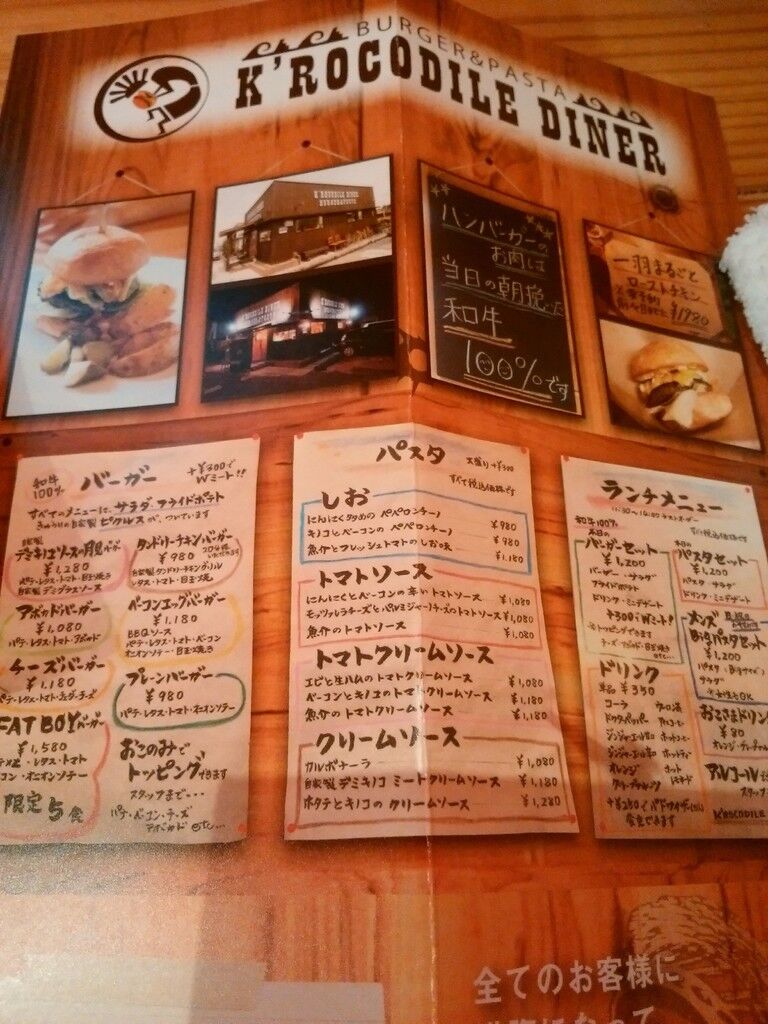 BURGER&PASTA
K'ROCODILE DINER
K'ROCODILE DINER
BURGER&PASTA
ハンバーガーの
お肉は
当日の朝挽いた
和牛
100%です
一羽まるごと
ローストチキン
¥1780
和牛
100%
バーガー
+¥300で
Wミート!!
すべてのメニューに、サラダ・フライドポテト
きゅうりの自家製ピクルスが、ついています
自家製
デミキノコソースの月見バーガー
¥1,280
パテ・レタス・トマト・目玉焼き
自家製デミグラスソース
タンドリーチキンバーガー
¥980
自家製タンドリーチキングリル
レタス・トマト・目玉焼
アボカドバーガー
¥1,080
パテ・レタス・トマト・アボカド
ベーコンエッグバーガー
¥1,180
BBQソース
パテ・レタス・トマト・ベーコン
オニオンソテー・目玉焼き
チーズバーガー
¥1,180
パテ・レタス・トマト・チェダーチーズ
プレーンバーガー
¥980
パテ・レタス・トマト・オニオンソテー
FAT BOYバーガー
¥1,580
・レタス・トマト
コン・オニオンソテー
限定5食
おこのみで
トッピングできます
スタッフまで・・・
パテ・ベーコン・チーズ
アボカド etc...
パスタ
大盛り+¥300
すべて税込価格です
しお
にんにく多めのペペロンチーノ ¥980
キノコとベーコンのペペロンチーノ ¥980
魚介とフレッシュトマトのしお味 ¥1,180
トマトソース
にんにくとベーコンの辛いトマトソース ¥1,080
モッツァレラチーズとパルミジャーノチーズのトマトソース ¥1,080
魚介のトマトソース ¥1,080
トマトクリームソース
エビと生ハムのトマトクリームソース ¥1,080
ベーコンとキノコのトマトクリームソース ¥1,180
魚介のトマトクリームソース ¥1,180
クリームソース
カルボナーラ ¥1,080
自家製デミキノコ ミートクリームソース ¥1,180
ホタテとキノコのクリームソース ¥1,280
ランチメニュー
11:30〜14:00 ラストオーダー
和牛100%
本日の
バーガーセット
¥1,200
バーガー・サラダ
フライドポテト
ドリンク・ミニデザート
+300でWミート!
トッピングできます
チーズ・アボカド・目玉焼き
etc...
すべて税込価格です
本日の
パスタセット
¥1,200
パスタ・サラダ
ドリンク・ミニデザート
メンズ
Bigパスタセット
¥1,200
サラダ
ドリンク
単品 ¥350
コーラ
ウーロン茶
ドクターペッパー
アイスコーヒー
ジンジャーエール甘口
ホットコーヒー
ジンジャーエール辛口
ホットティー
オレンジ
ホット
グレープフルーツ
おこさまドリンク
¥80
アルコール
K'ROCODILE
全てのお客様に